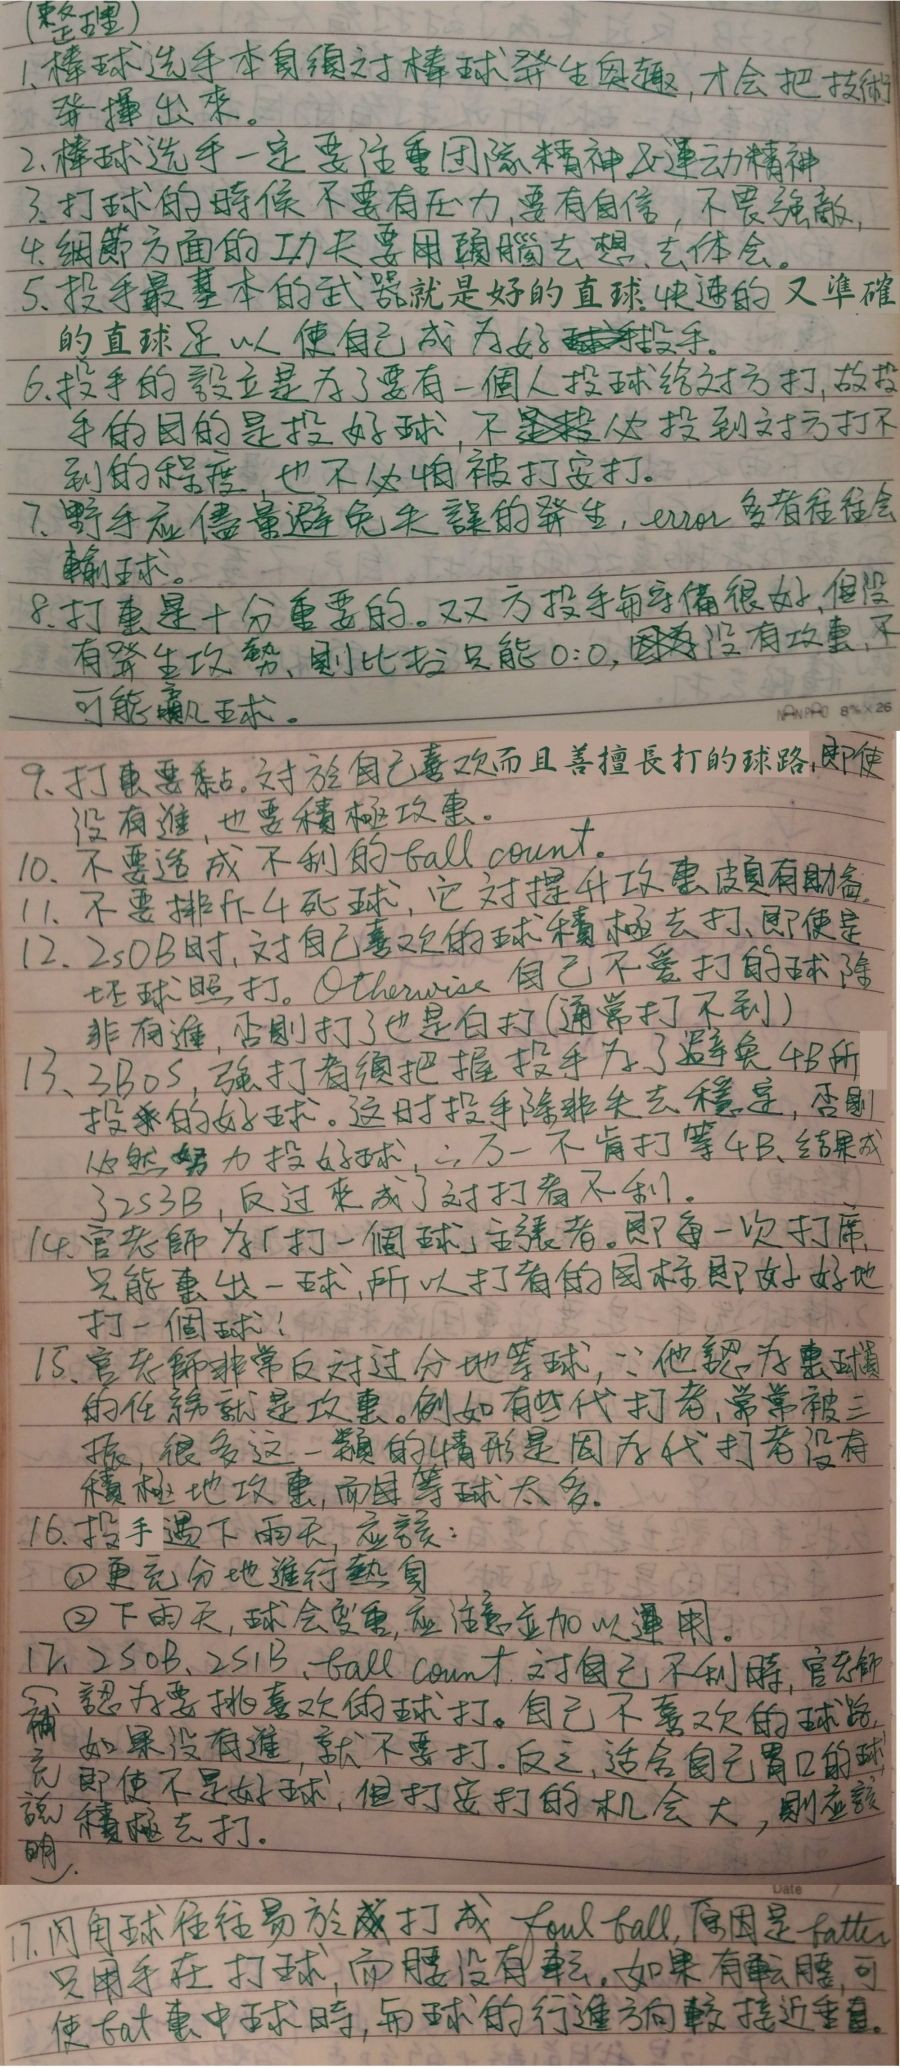 (整理)
1.棒球选手本身須对棒球発生興趣,才会把技術
発揮出來。
2.棒球选手一定要注重团隊精神&運动精神
3.打球的時候不要有压力,要有自信,不畏強敵,
4.細節方面的功夫要用頭腦去想、去体会。
5.投手最基本的武器就是好的直球.快速的又準確
的直球足以使自己成为好投手。
6.投手的設立是为了要有一個人投球给对方打,故投
手的目的是投好球,不必投到对方打不
到的程度,也不必怕被打安打。
7.野手应儘量避免失誤的発生,error多者往往会
輸球。
8.打擊是十分重要的。双方投手每守備很好,但沒
有発生攻勢,則比数只能0:0,沒有攻擊,不
可能贏球。
NANPAO 8⅜×26
9.打擊要黏。对於自己喜欢而且善擅長打的球路,即使
沒有進,也要積極攻擊。
10.不要造成不利的ball count。
11.不要排斥4死球,它对提升攻擊頗有助益.
12.2S0B时,对自己喜欢的球積極去打、即使是
坏球照打。Otherwise自己不愛打的球除
非有進,否則打了也是白打(通常打不到)
13、3B0S,強打者須把握投手为了避免4B所
投來的好球。这时投手除非失去穩定,否則
必然努力投好球,∴万一不肯打等4B、結果成
了2S3B,反过來成了对打者不利。
14.官老師为「打一個球」主張者。即每一次打席,
只能擊出一球,所以打者的目标即好好地
打一個球!
15、官老師非常反对过分地等球,∵他認为擊球員
的任務就是攻擊。例如有些代打者,常常被三
振,很多这一類的情形是因为代打者沒有
積極地攻擊,而且等球太多。
16.投手遇下雨天,应該:
①更充分地進行熱身
②下雨天,球会变重,应注意並加以運用。
17.2S0B、2S1B、ball count.对自己不利時,官老師
認为要挑喜欢的球打。自己不喜欢的球路,
如果沒有進,就不要打.反之,适合自己胃口的球,
即使不是好球,但打安打的机会大,則应該
積極去打.
(補充説明)
Date
17.内角球往往易於打成foul ball,原因是batter
只用手在打球,而腰沒有転。如果有転腰,可
使bat擊中球時,与球的行進方向較接近垂直。